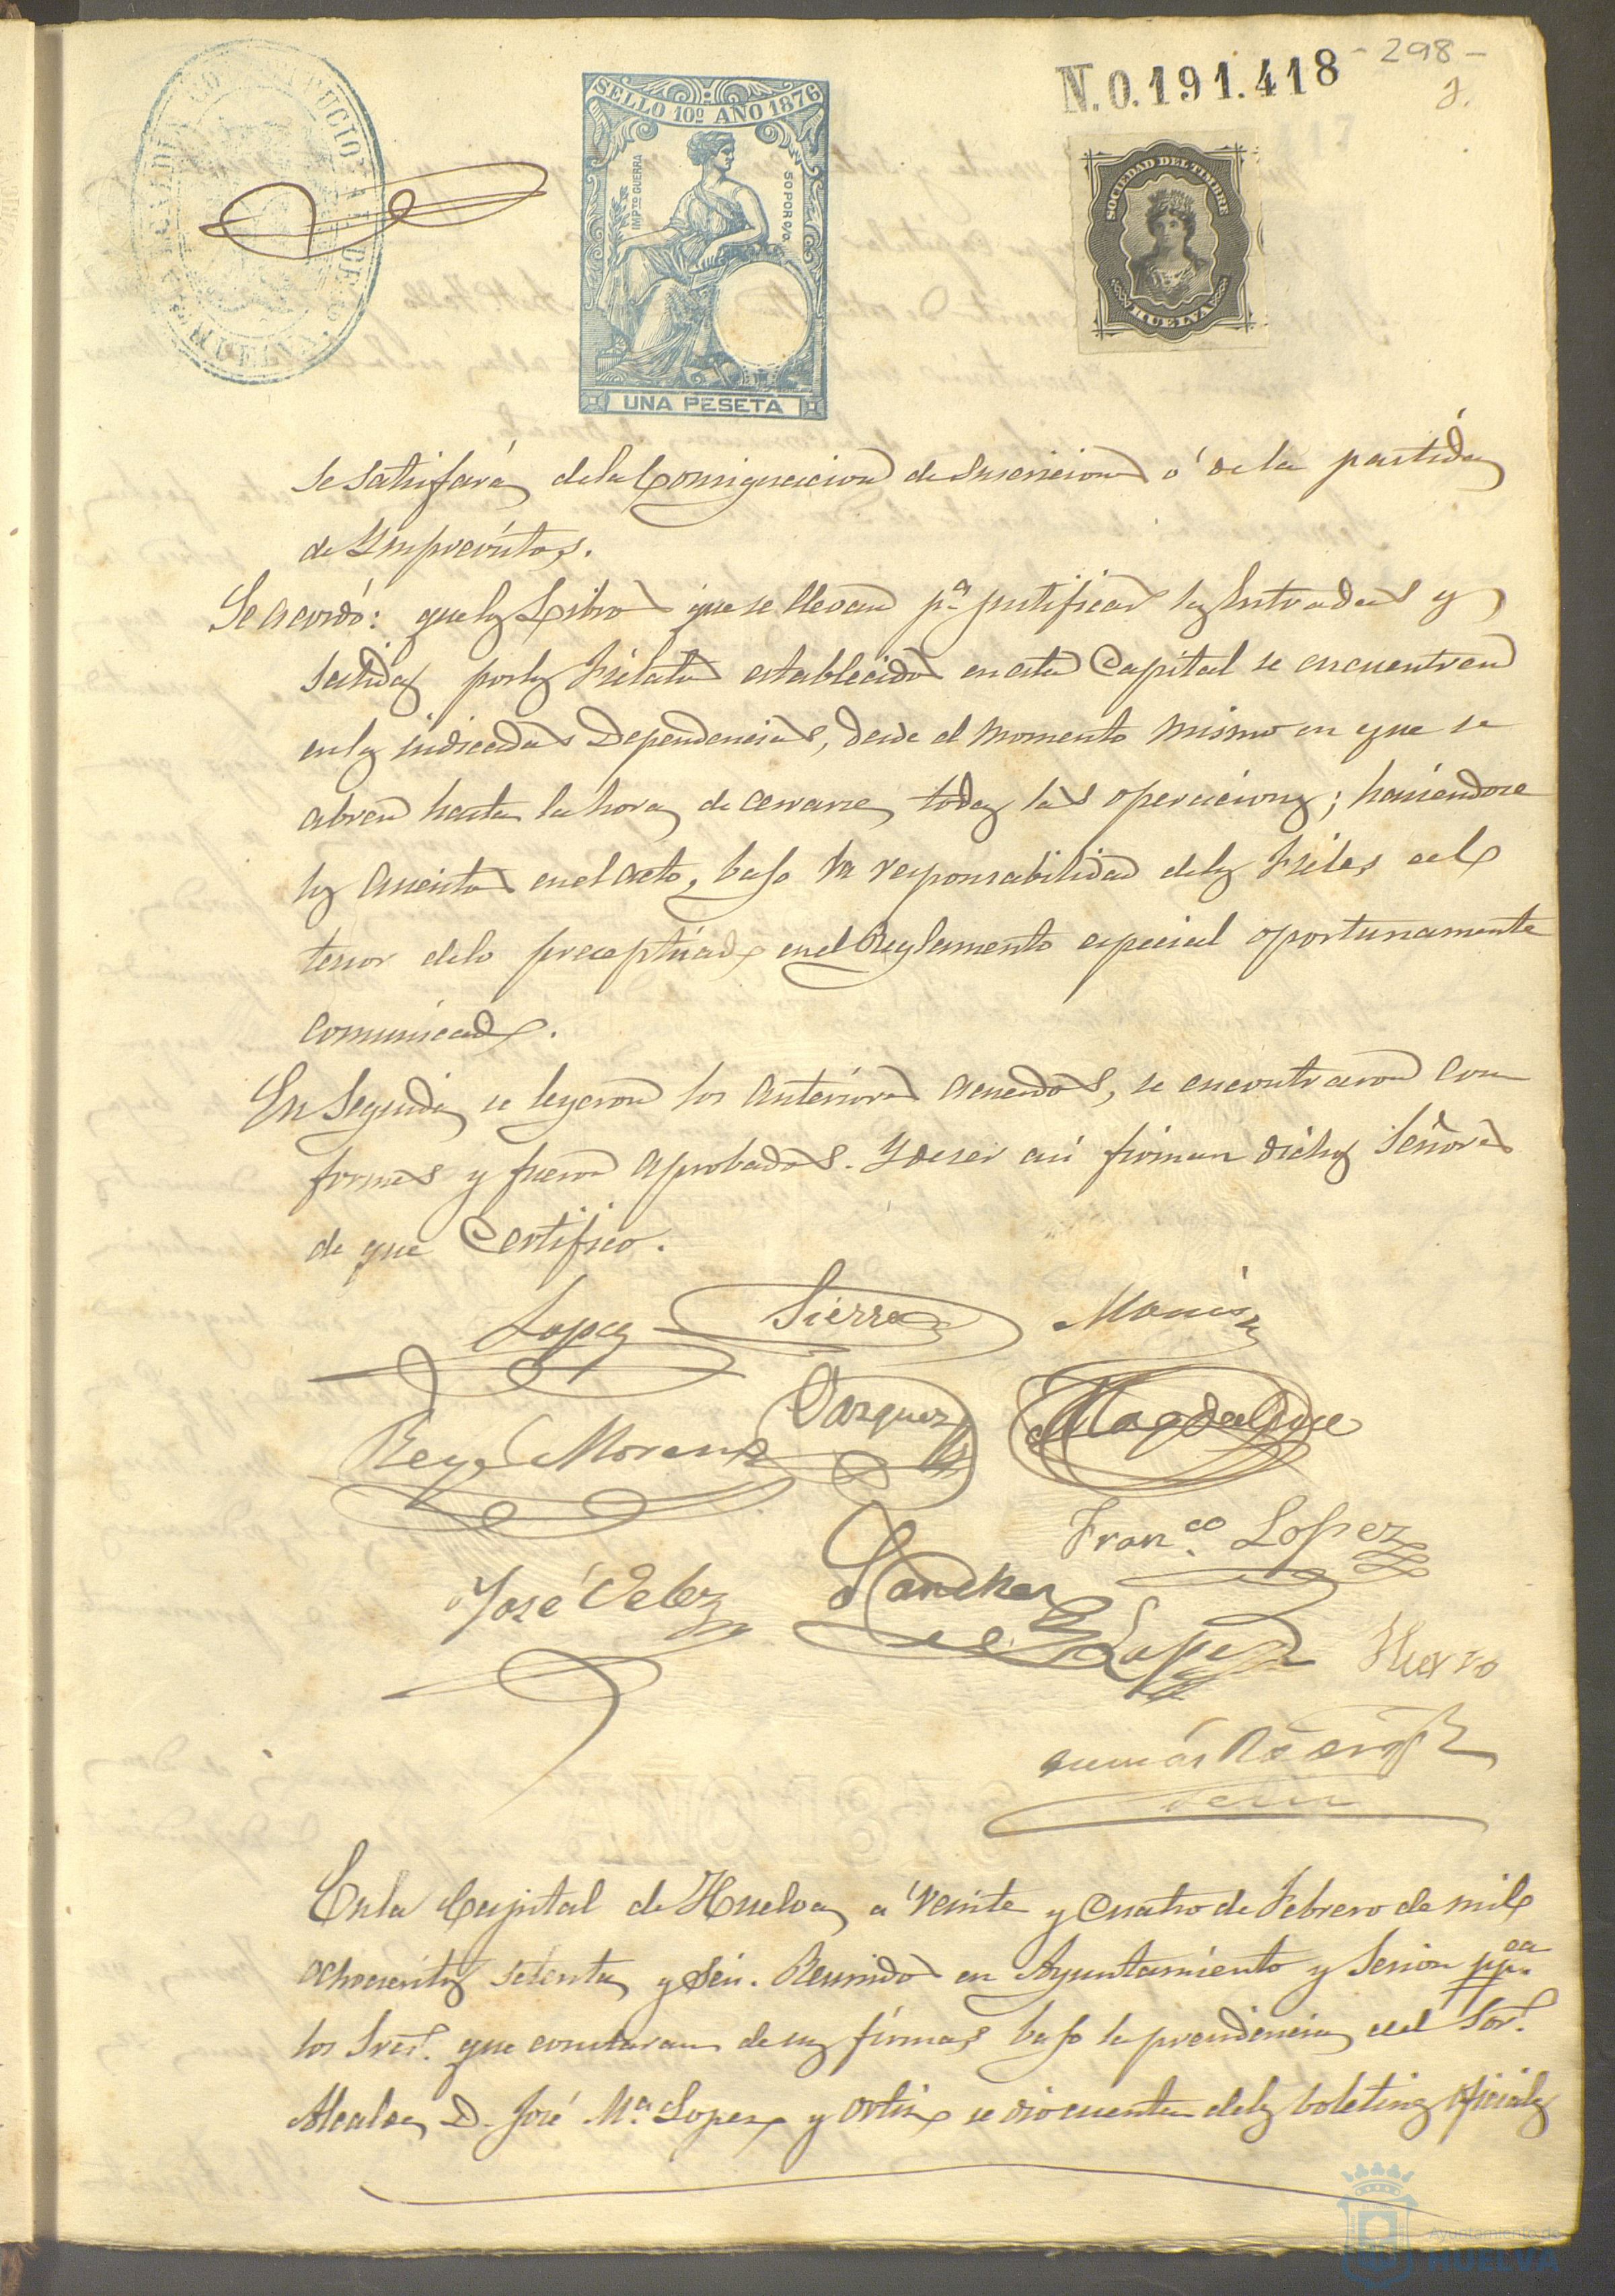 - 298 -
N. 0.191.418
SELLO 10º AÑO 1876
IMPTO GUERRA
50 POR 0/0
UNA PESETA
SOCIEDAD DEL TIMBRE
HUELVA
HUELVA
se satisfará de la Consignacion de Suscricion ó de la partida
de Ymprevistos.
Se acordó: que los Libros que se llevan pª justificar las Entradas y
salidas por los Fielatos establecidos en esta Capital se encuentren
en las indicadas Dependencias, desde el momento mismo en que se
abren hasta la hora de cerrarse todas las operaciones; haciendose
los asientos en el acto, bajo la responsabilidad de los Fieles al
tenor de lo preceptuado en el Reglamento especial oportunamente
comunicado.
En seguida se leyeron los anteriores acuerdos, se encontraron con
formes y fueron aprobados. Y de ser asi firman dichos Señores
de que Certifico.
Lopez Sierra
Rey Moreno Vazquez Magdalena
Franco. Lopez
José Velez Sanchez
Lopez Hierro
En la Capital de Huelva a veinte y cuatro de Febrero de mil
ochocientos setenta y seis. Reunidos en Ayuntamiento y Sesion ppca
los Sres. que constaran de sus firmas bajo la presidencia del Sor.
Alcalde D. José Mª Lopez y Ortiz se dio cuenta de los boletines oficiales
Ayuntamiento de
HUELVA